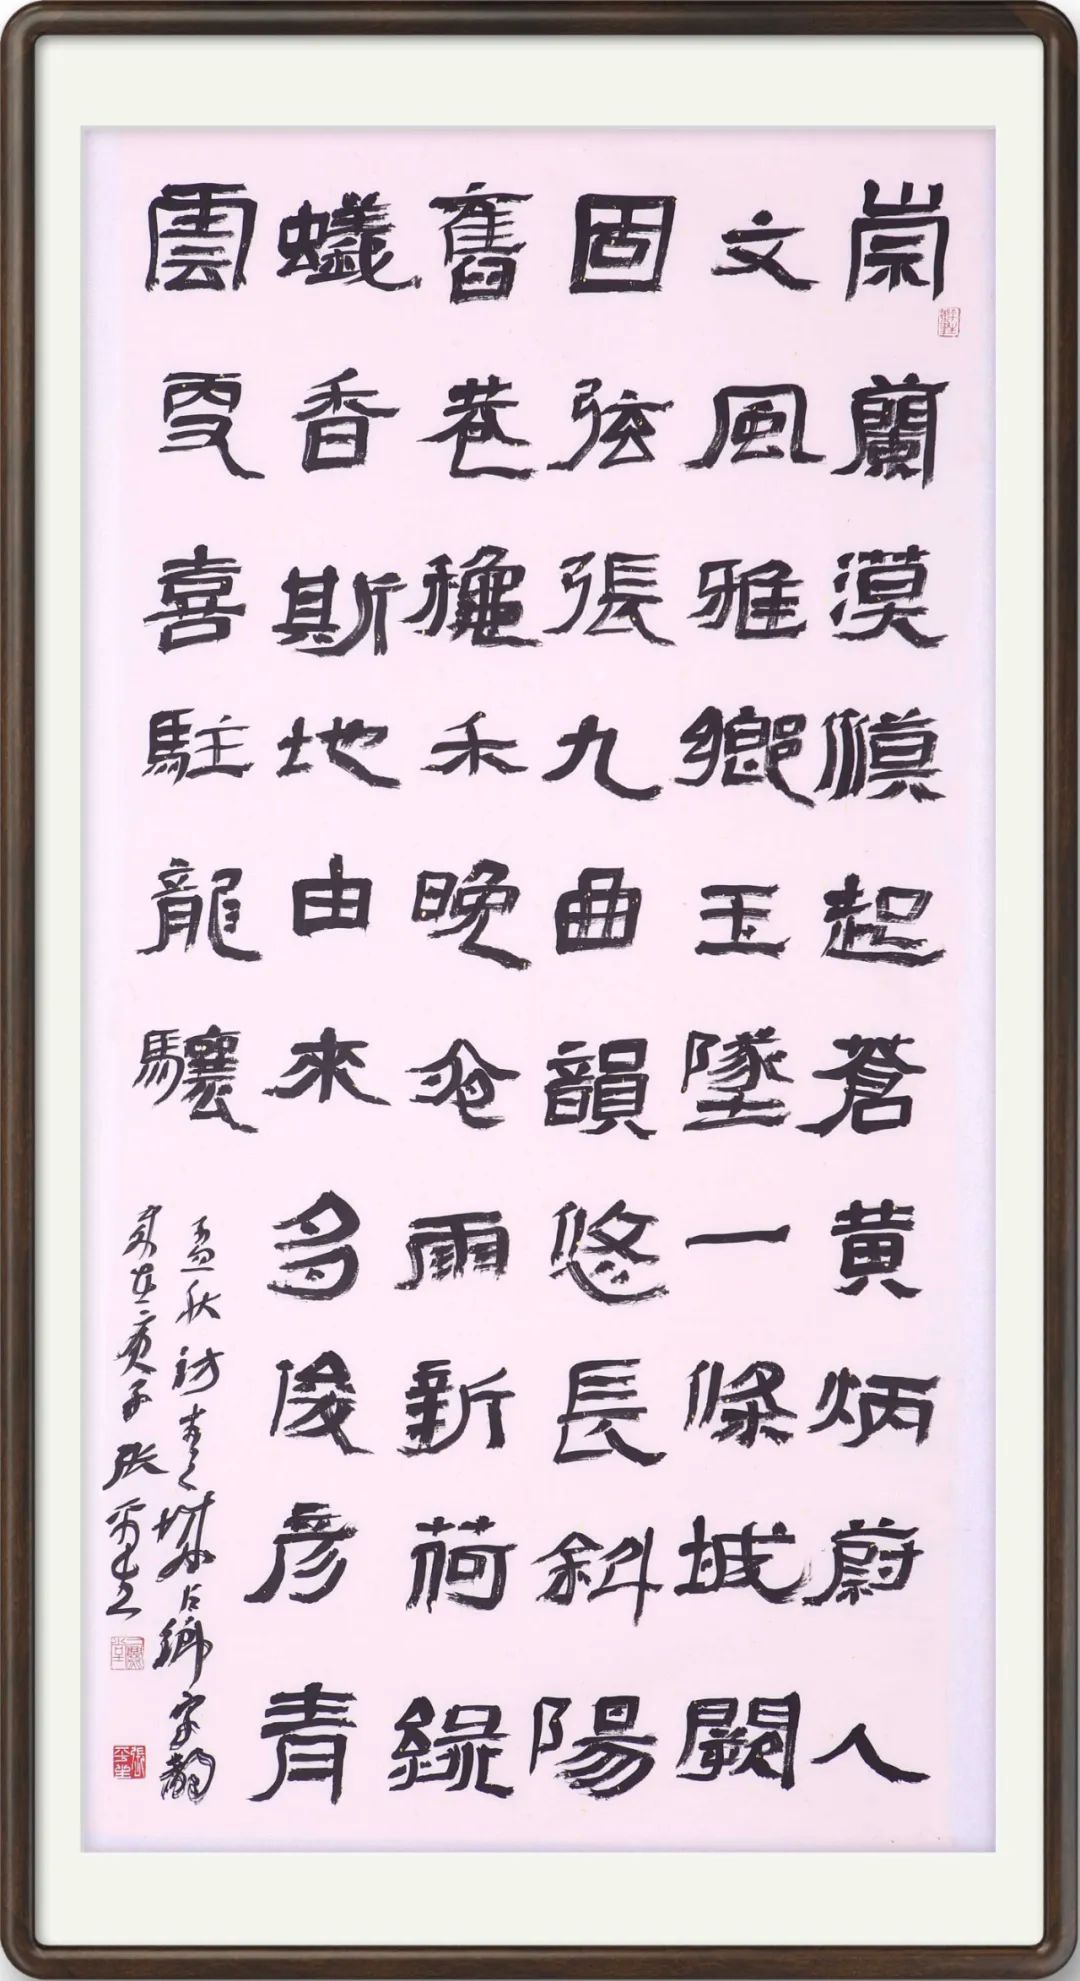 崇蘭漠漠起蒼黃炳蔚人
文風雅鄉玉墜一條城闕
固弦張九曲韻悠長斜陽
舊巷龝禾晚仓雨新荷綠
蟻香斯地由來多俊彥青
雲更喜駐龍驤
孟秋訪青城古鄉字韵
岁在庚子张平生